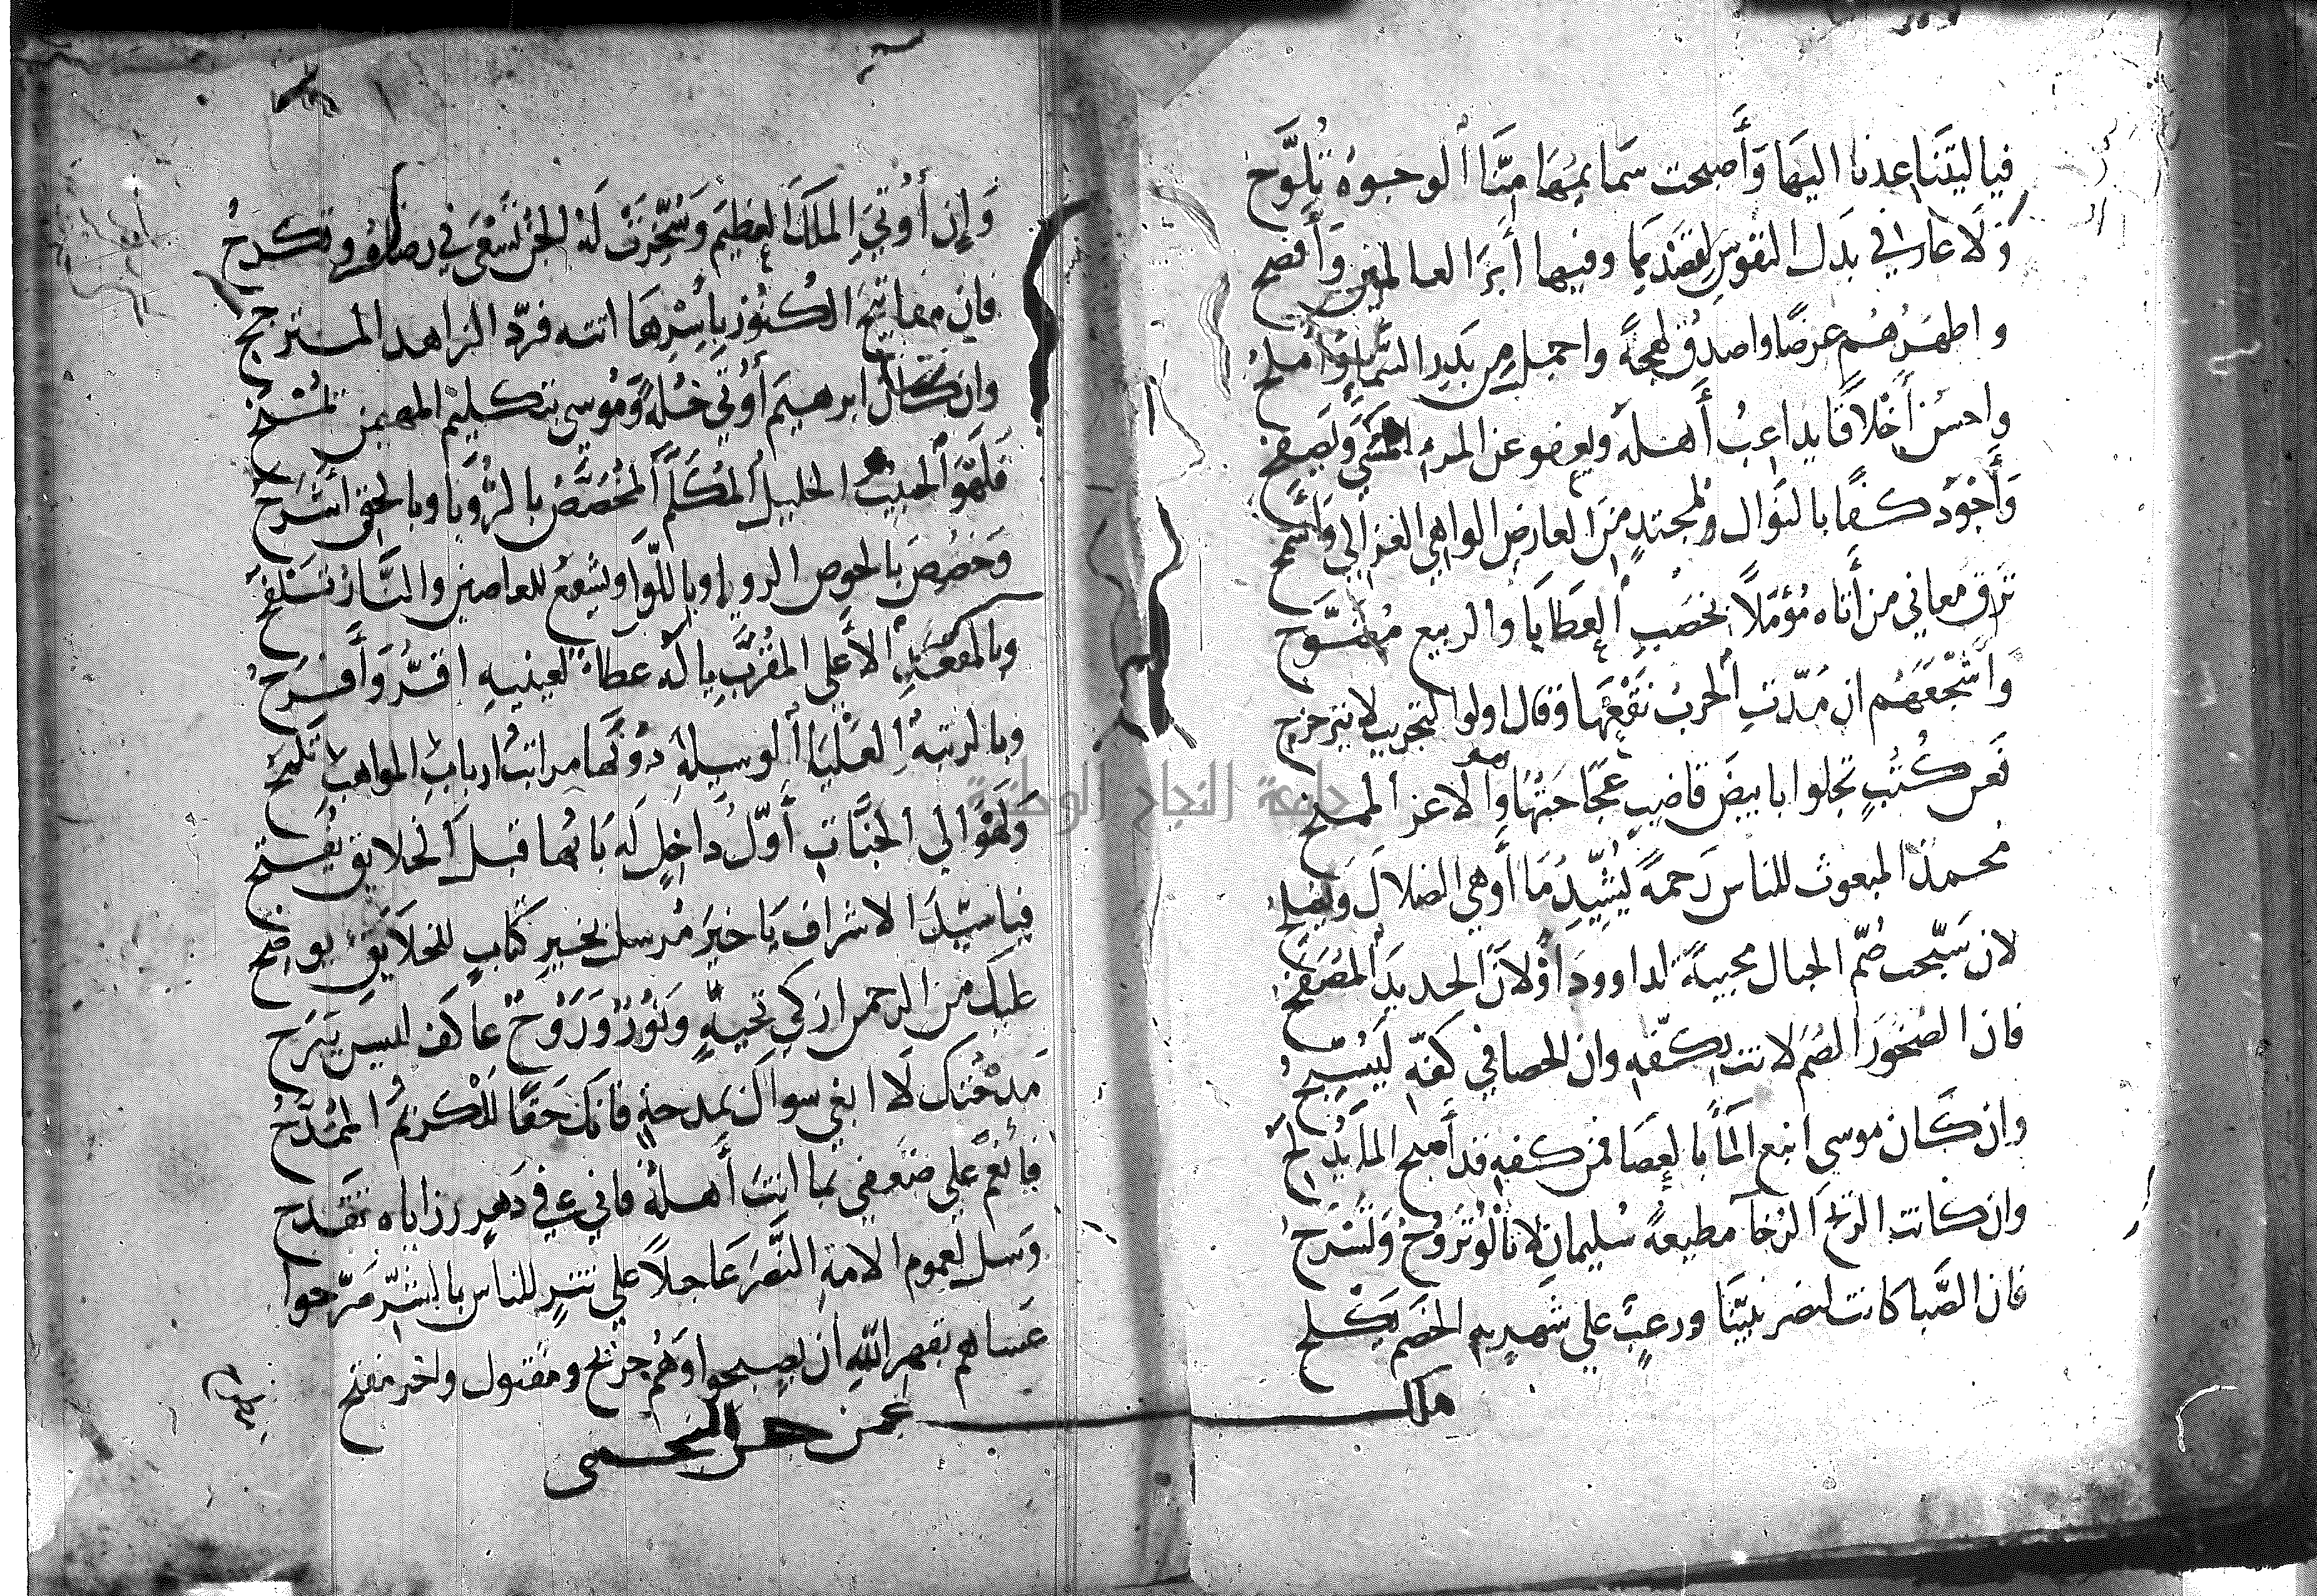 فيا ليتنا عدنا اليها وأصبحت سمايمها منا الوجوه تلوّح
ولا عار في بذل النفوس لقصد يما وفيها أبرّ العالمين وأفصح
واطهرهم عرضا واصدق لهجة واجمل من بدر السماء وأملح
واحسن أخلاقا يداعب أهله ويعفو عن المرء المسي ويصفح
وأجود كفا بالنوال لمجتد من العارض الواهي الغزالي وأسمح
ترق معاني من أتاه مؤملا بخصب العطايا والربيع مصوّح
وأشجعهم ان مدّت الحرب نقعها وقال اولوا التجريب لا تتزحزح
نعن كثب تجلوا بابيض قاضب عجاجتها والاعز الملح
محمد المبعوث للناس رحمة يشيد ما أوهي الضلال ويصلح
لان سبّحت صُمّ الجبال مجيبة لداوود أو لان الحديد المصفح
فان الصخور الصم لانت بكفّه وان الحصا في كفّه ليسبّح
وان كان موسي انبع الما بالعصا فمن كفه قد أصبح الما يطفح
وان كانت الريح الرخاء مطيعة سليمان لا تالو تروح وتسرح
فان الصبا كانت لنصر نبينا ورعب علي شهر به الخصم يكلح
وان أوتي الملك العظيم وسخرت له الجن تسعي في رضاه وتكدح
فان مفاتيح الكنوز باسرها اتته فردّ الزاهد المترجح
وان كان ابرهيم أوتي خلة وموسي بتكليم المهيمن يمنح
فلهو الحبيب الخليل المكلم المخصص بالرؤيا وبالحق أشرح
وخصص بالحوض الروا وباللوا ويشفع للعاصين والنار تلفح
وبالمقعد الأعلي المقرب ياله عطاء لعينيه اقرّ وأفرح
وبالرتبة العليا الوسيلة دونها مراتب ارباب المواهب تلمح
ولهو الي الجنات أوّل داخل له بابها قبل الخلايق يفتح
فيا سيد الاشراف يا خير مرسل بخير كتاب للخلايق يوضح
عليك من الرحمن ازكي تحية ونور وروح عاكف ليس يبرح
مدحتك لا ابغي سواك بمدحة فانك حقا للكريم الممدح
فأنعم علي ضعفي بما انت أهله فاني في دهر رزاياه تقدح
وسل لعموم الامة النصر عاجلا علي تتر للناس بالشرّ مرّحوا
عساهم بقهر الله أن يصبحوا وهم جريح ومقتول واخر مقتح
ملك
عمن حسن النجمي
جامعة النجاح الوطنية